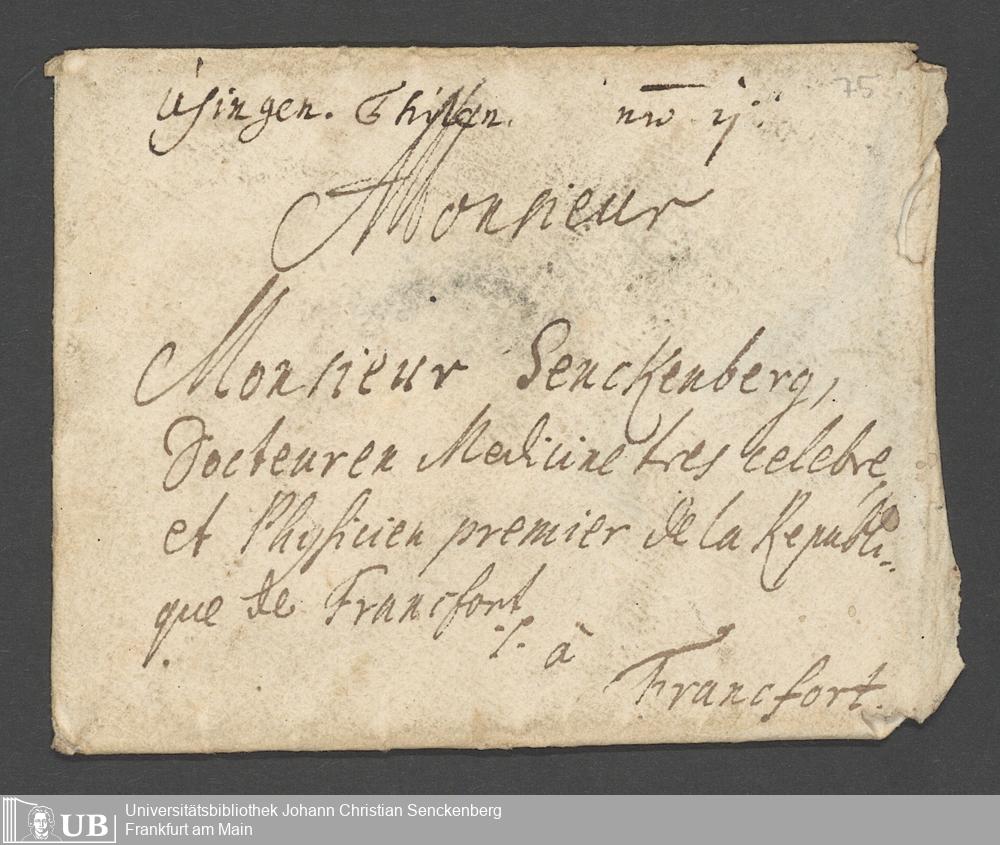 Usingen. Thilen.
75
Monsieur
Monsieur Senckenberg,
Docteur en Medicine tres celebre,
et Physicien premier de la Republi-
que de Francfort
./. à
Francfort.
UB
Universitätsbibliothek Johann Christian Senckenberg
Frankfurt am Main